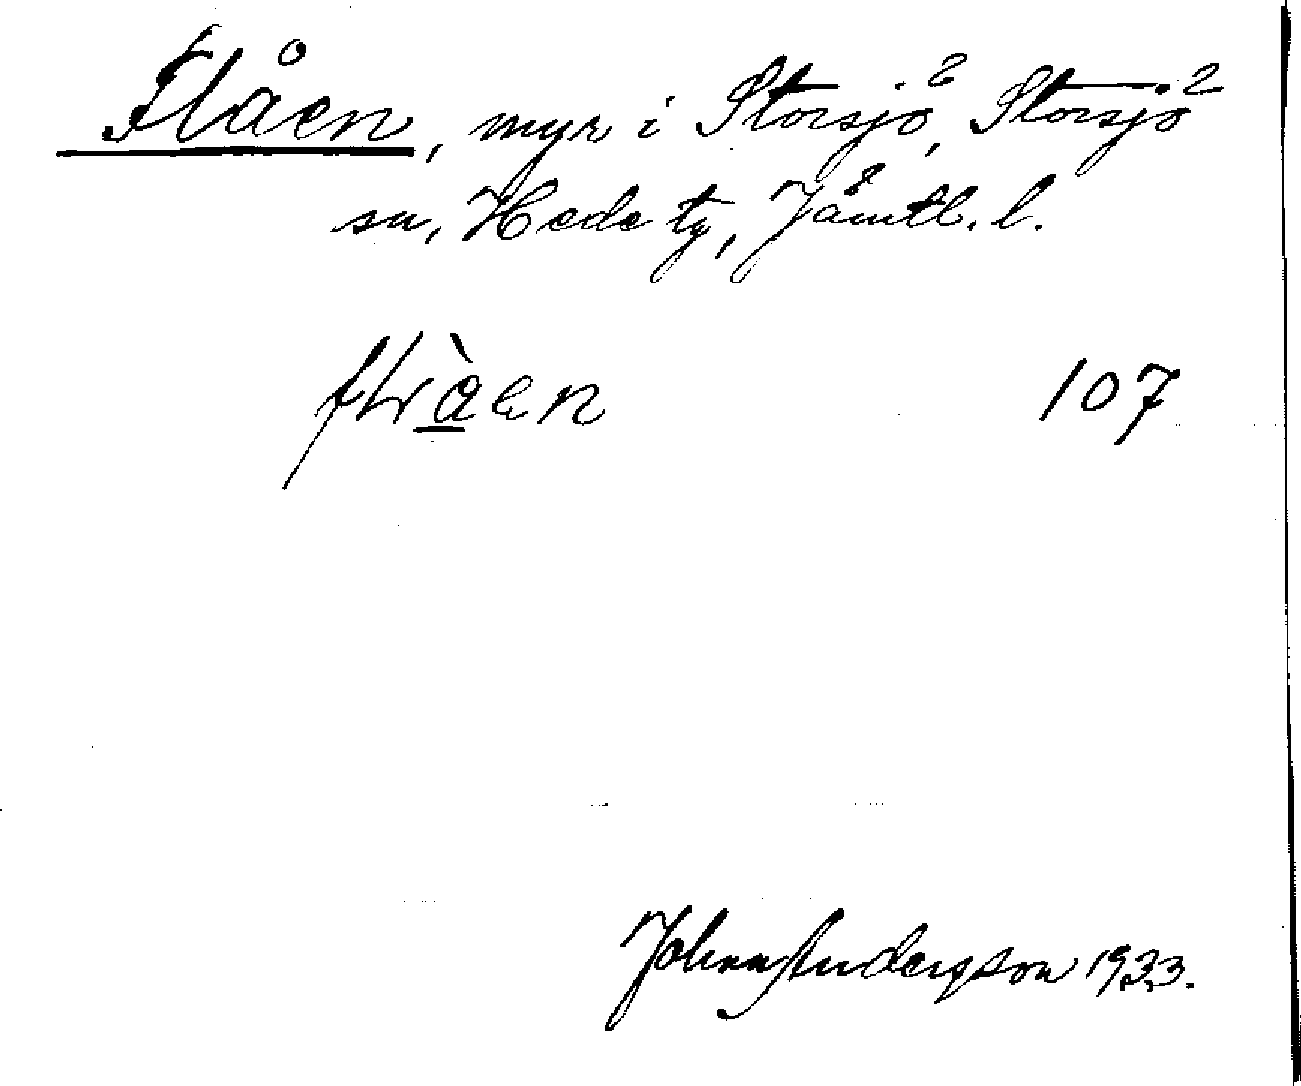 Flåen, myr i Storsjö, Storsjö
sn, Hede tg, Jämtl. l.
107
Johan Andersson 1933.